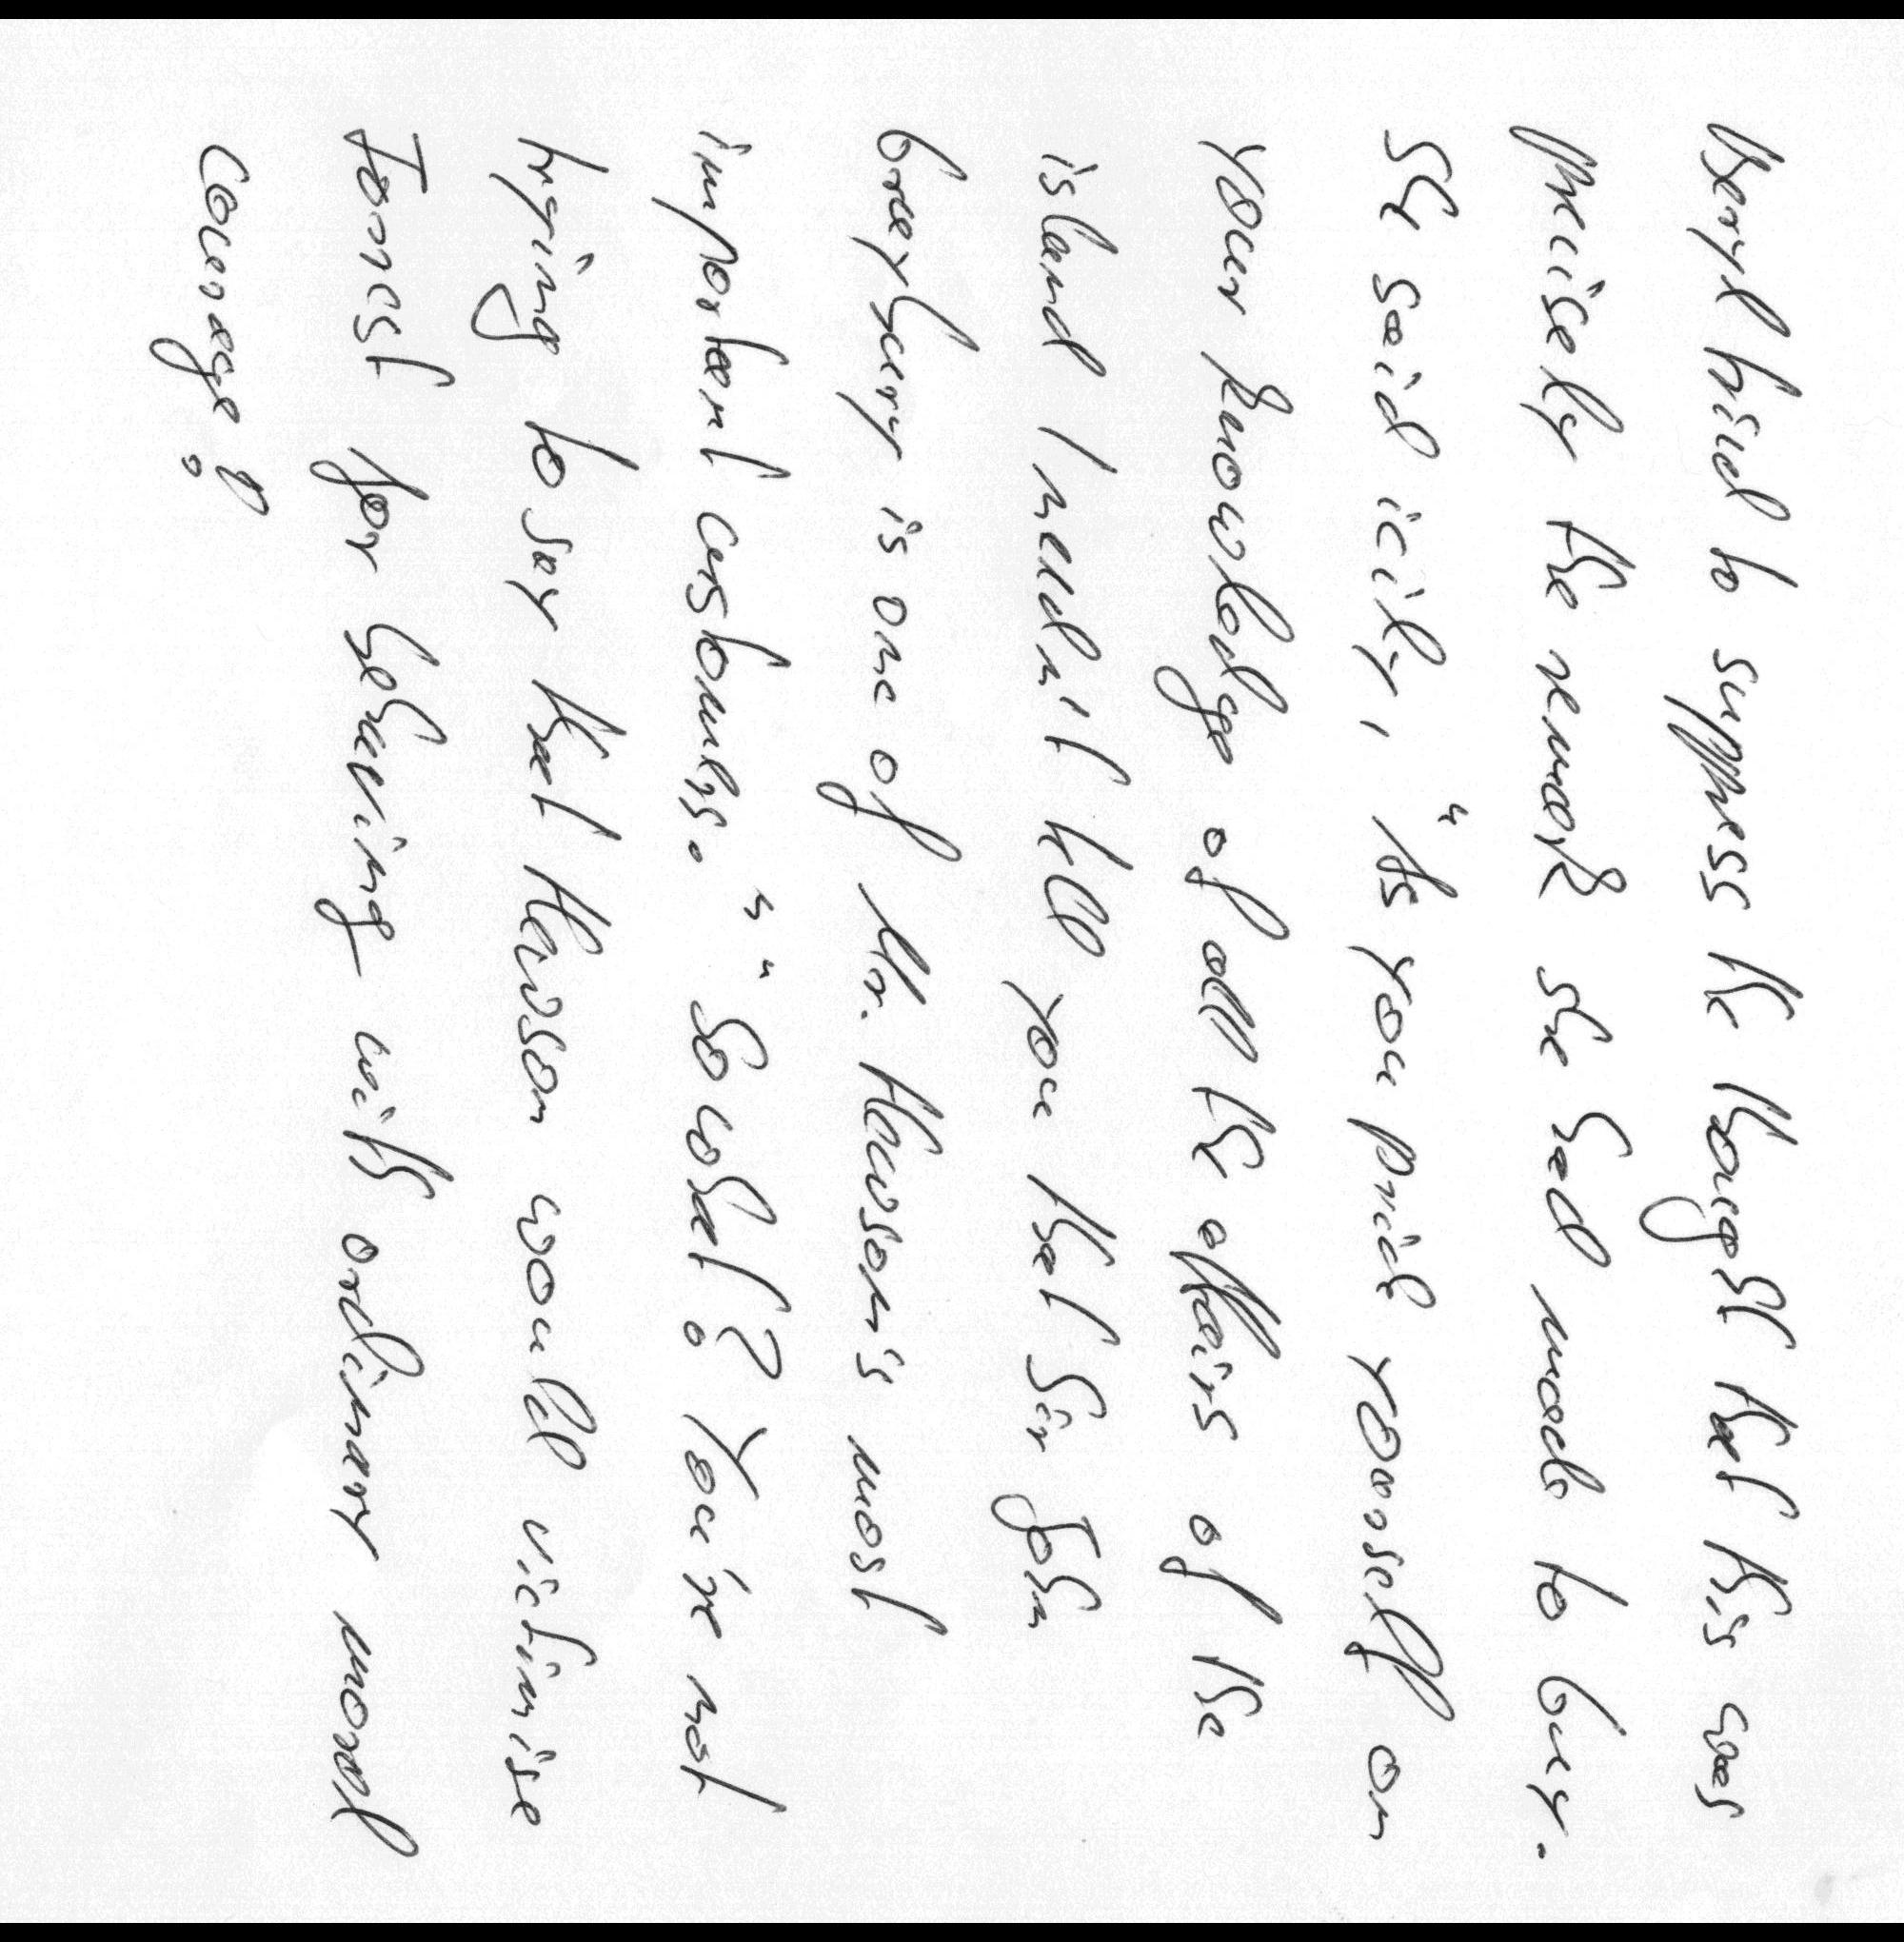 Beryl tried to suppress the thought that this was
precisely the remark she had made to Guy.
She said icily, "As you pride yourself on
your knowledge of all the affairs of the
island I needn't tell you that Sir John
Graybury is one of Mr. Hewson's most
important customers." "So what? You're not
trying to say that Hewson would victimise
Forrest for behaving with ordinary moral
courage?